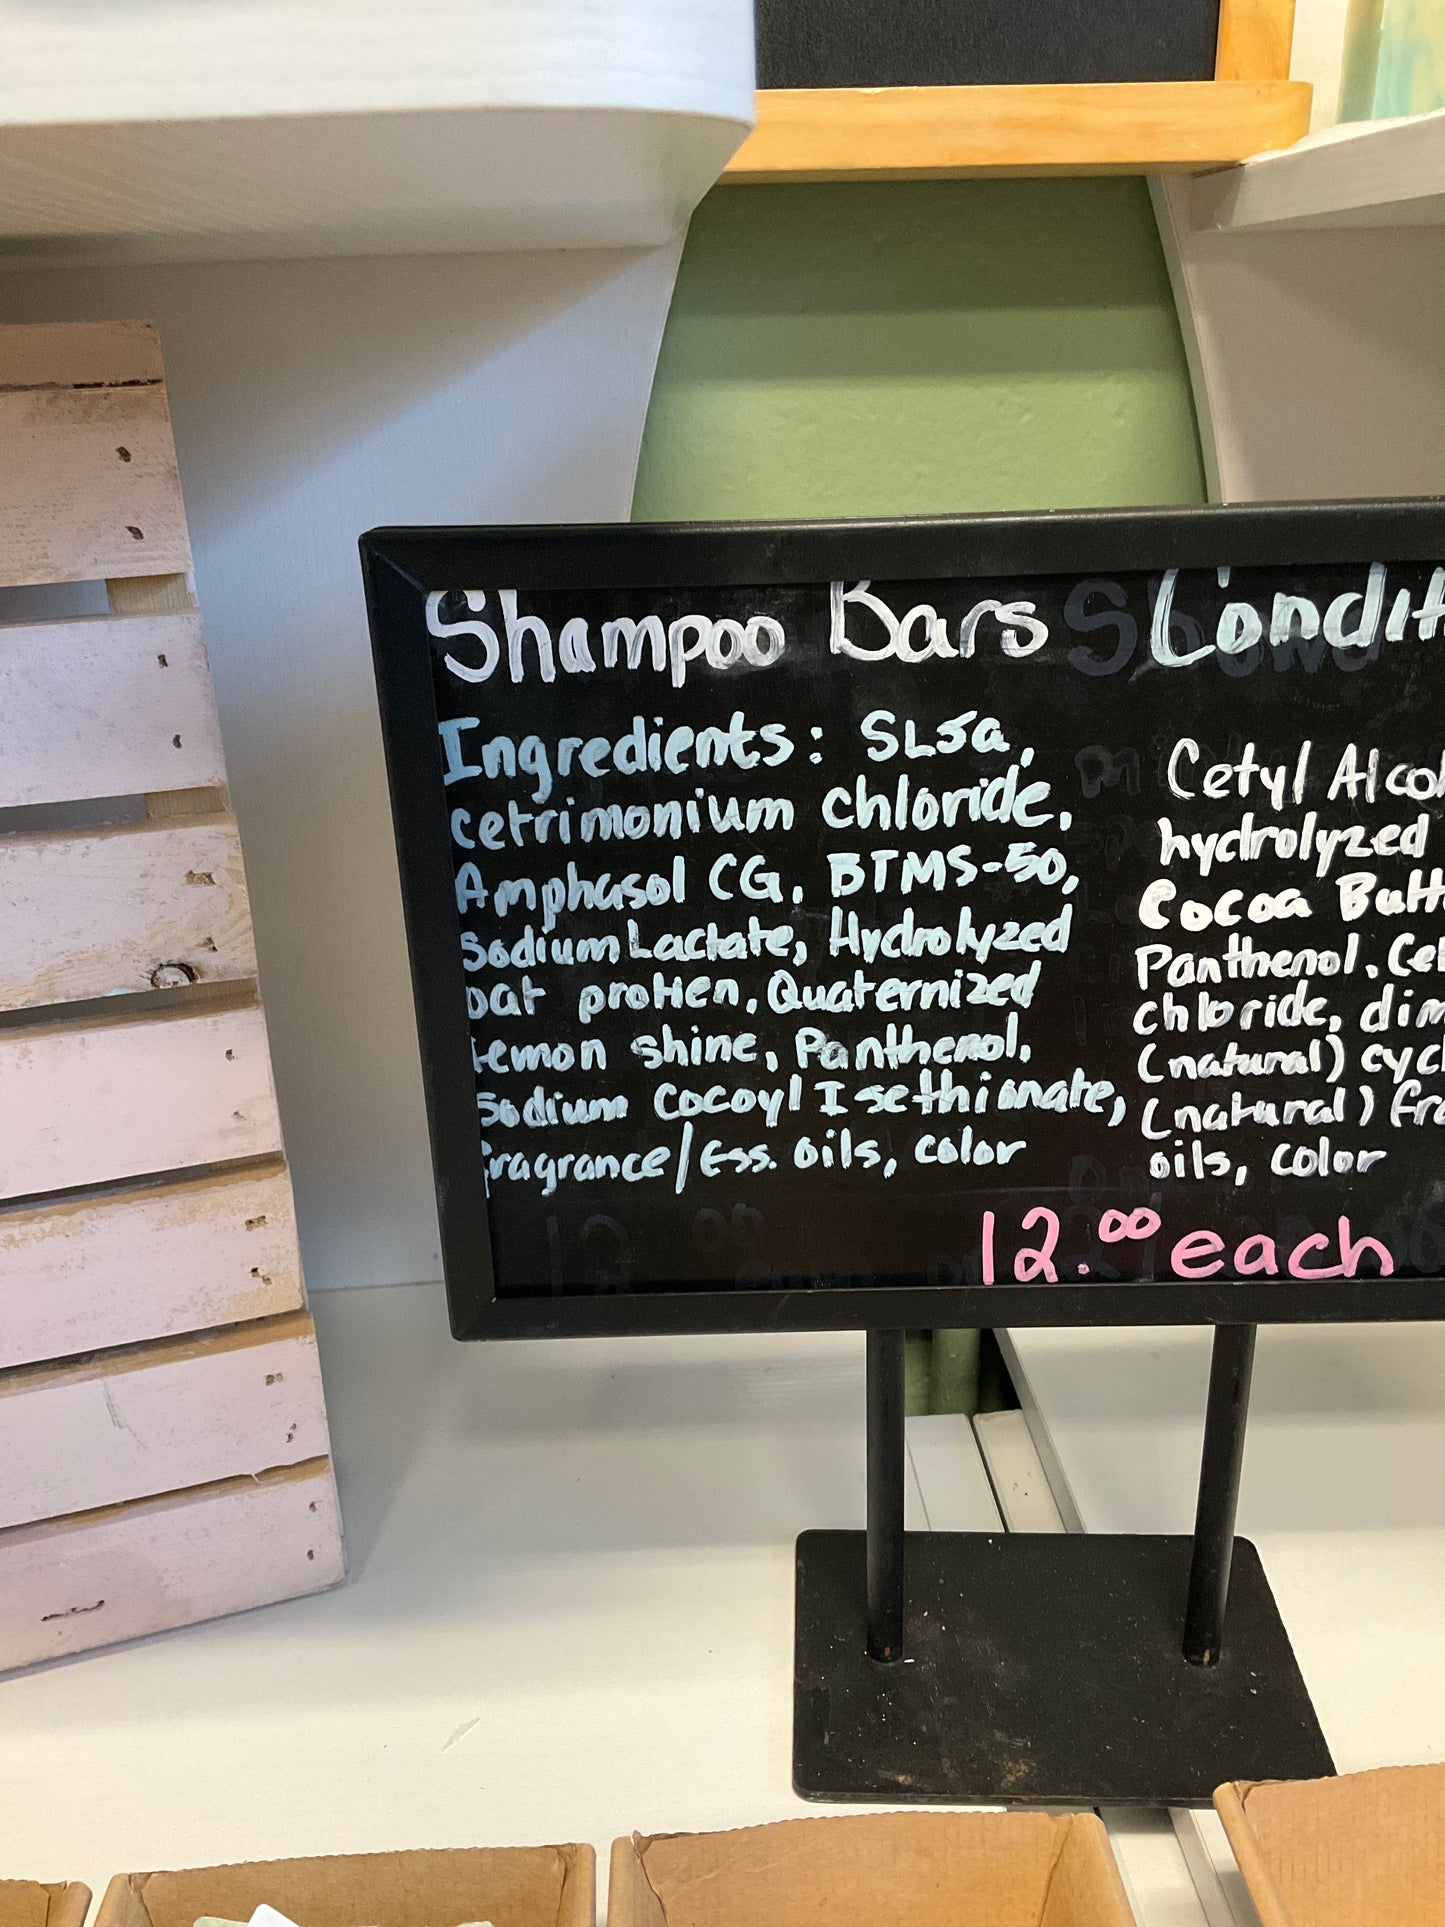 Shampoo Bars
Ingredients: SLSa,
cetrimonium chloride,
Amphasol CG, BTMS-50,
Sodium Lactate, Hydrolyzed
oat protien, Quaternized
Lemon shine, Panthenol,
Sodium Cocoyl Isethionate,
fragrance/Ess. oils, color
Condit
Cetyl Alcoh
hydrolyzed
Cocoa Butt
Panthenol, Cet
chloride, dim
(natural) cycl
(natural) fra
oils, color
12.00 each